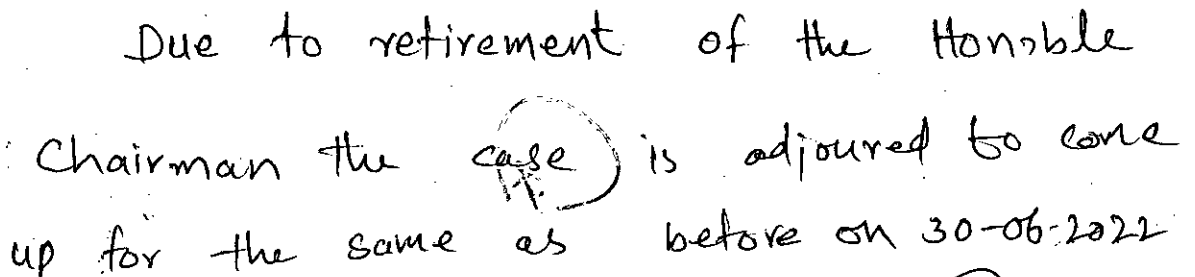 Due to retirement of the Honable
Chairman the case is adjoured to come
up for the same as before on 30-06-2022